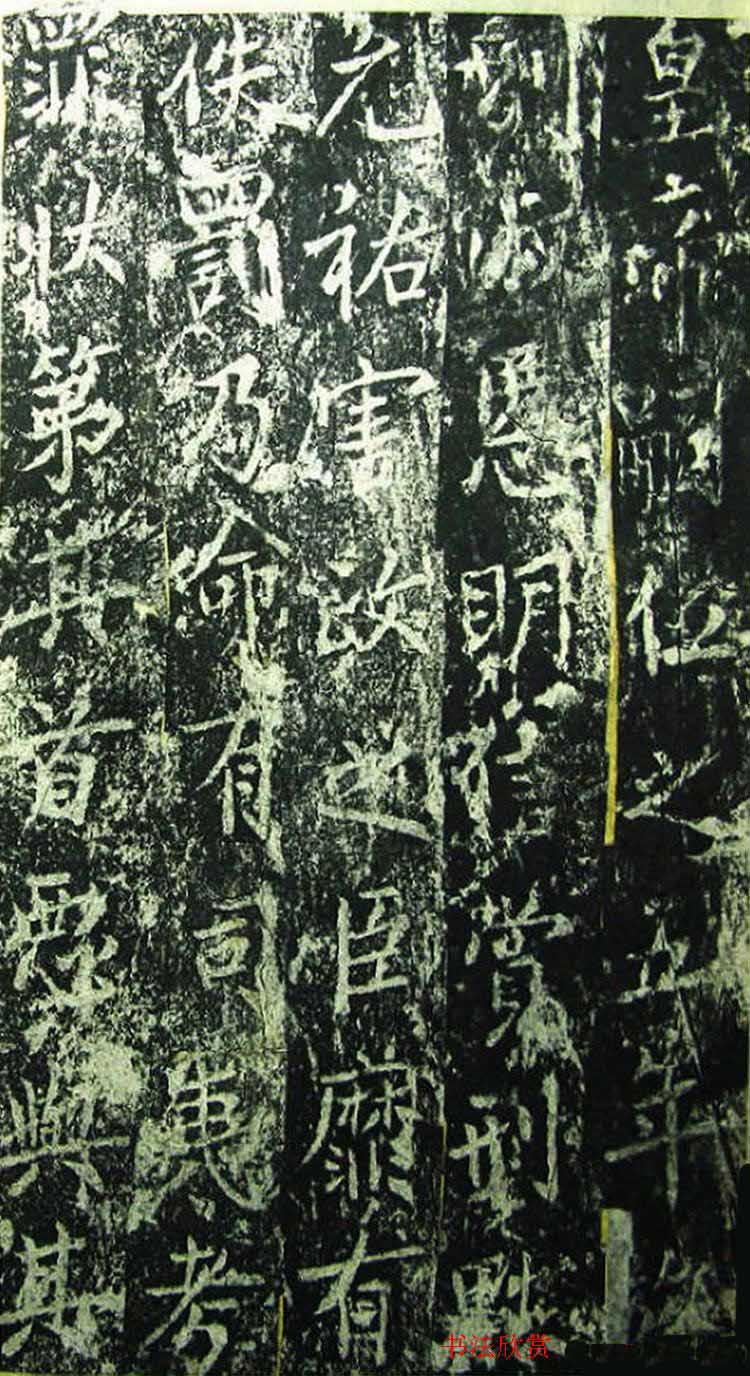 皇帝嗣位之五年旌
別淑慝明賞刑黜
元祐害政之臣靡有
佚罰乃命有司夷考
罪狀第其首惡與其
书法欣赏